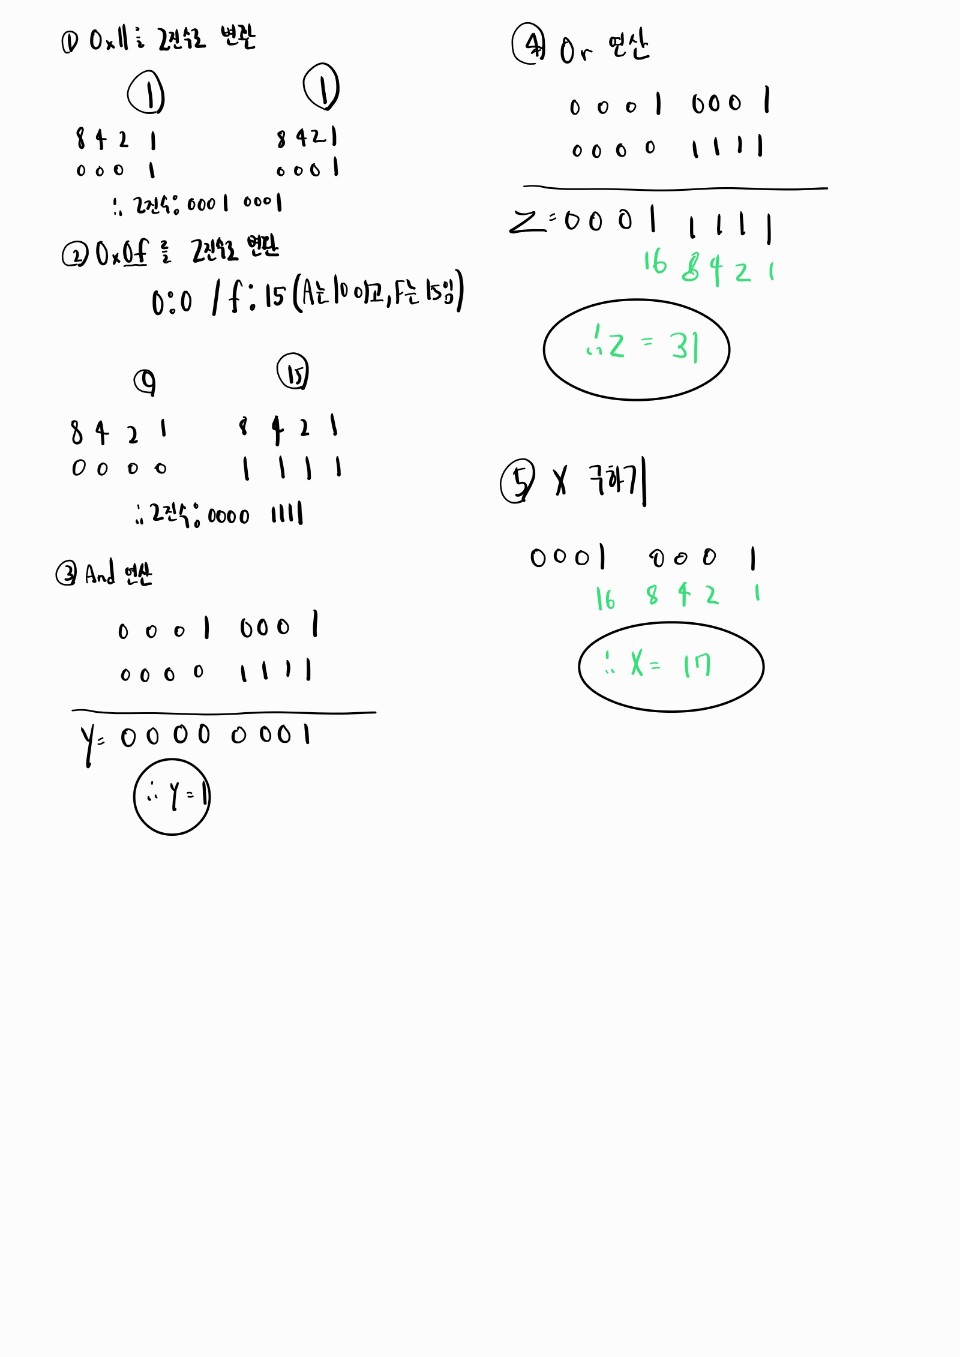 ① 0x11를 2진수로 변환
① ①
8 4 2 1 8 4 2 1
0 0 0 1 0 0 0 1
∴ 2진수: 0001 0001
② 0x0f 를 2진수로 변환
0:0 / f:15 (A는 10 이고, F는 15임)
⓪ ⑮
8 4 2 1 8 4 2 1
0 0 0 0 1 1 1 1
∴ 2진수: 0000 1111
③ And 연산
0 0 0 1 0 0 0 1
0 0 0 0 1 1 1 1
Y= 0 0 0 0 0 0 0 1
∴ Y=1
④ Or 연산
0 0 0 1 0 0 0 1
0 0 0 0 1 1 1 1
Z= 0 0 0 1 1 1 1 1
16 8 4 2 1
∴ Z = 31
⑤ X 구하기
0 0 0 1 0 0 0 1
16 8 4 2 1
∴ X = 17